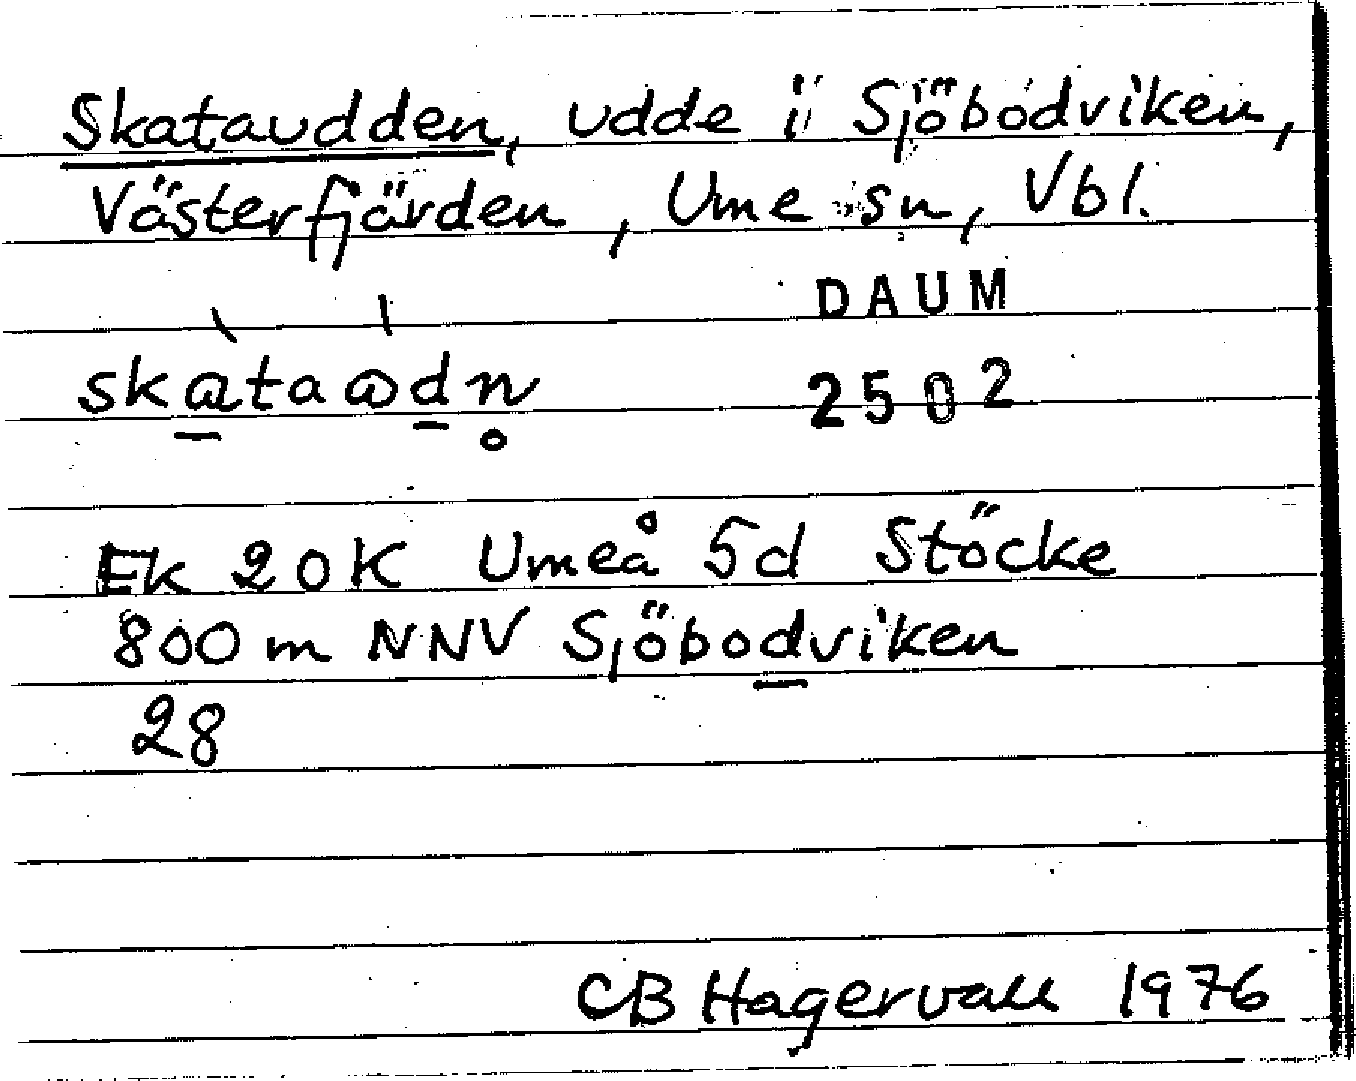 Skataudden, udde i Sjöbodviken,
Västerfjärden, Ume sn, Vbl.
DAUM
skàtaꝏdn̥
2502
Ek 20K Umeå 5d Stöcke
800 m NNV Sjöbodviken
28
CB Hagervall 1976